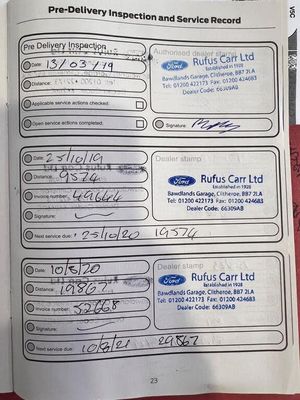 Pre-Delivery Inspection and Service Record
Pre Delivery Inspection
Authorised dealer stamp
Date: 13/03/19
Distance:
Applicable service actions checked:
Open service actions completed:
Ford
Rufus Carr Ltd
Established in 1928
Bawdlands Garage, Clitheroe, BB7 2LA
Tel: 01200 422173 Fax: 01200 424683
Dealer Code: 66309AB
Signature:
Date: 25/10/19
Distance: 9574
Invoice number: 49644
Signature:
Next service due: 25/10/20 19574
Dealer stamp
Ford
Rufus Carr Ltd
Established in 1928
Bawdlands Garage, Clitheroe, BB7 2LA
Tel: 01200 422173 Fax: 01200 424683
Dealer Code: 66309AB
Date: 10/8/20
Distance: 19867
Invoice number: 52668
Signature:
Next service due: 10/8/21 29867
Dealer stamp
Ford
Rufus Carr Ltd
Established in 1928
Bawdlands Garage, Clitheroe, BB7 2LA
Tel: 01200 422173 Fax: 01200 424683
Dealer Code: 66309AB
23